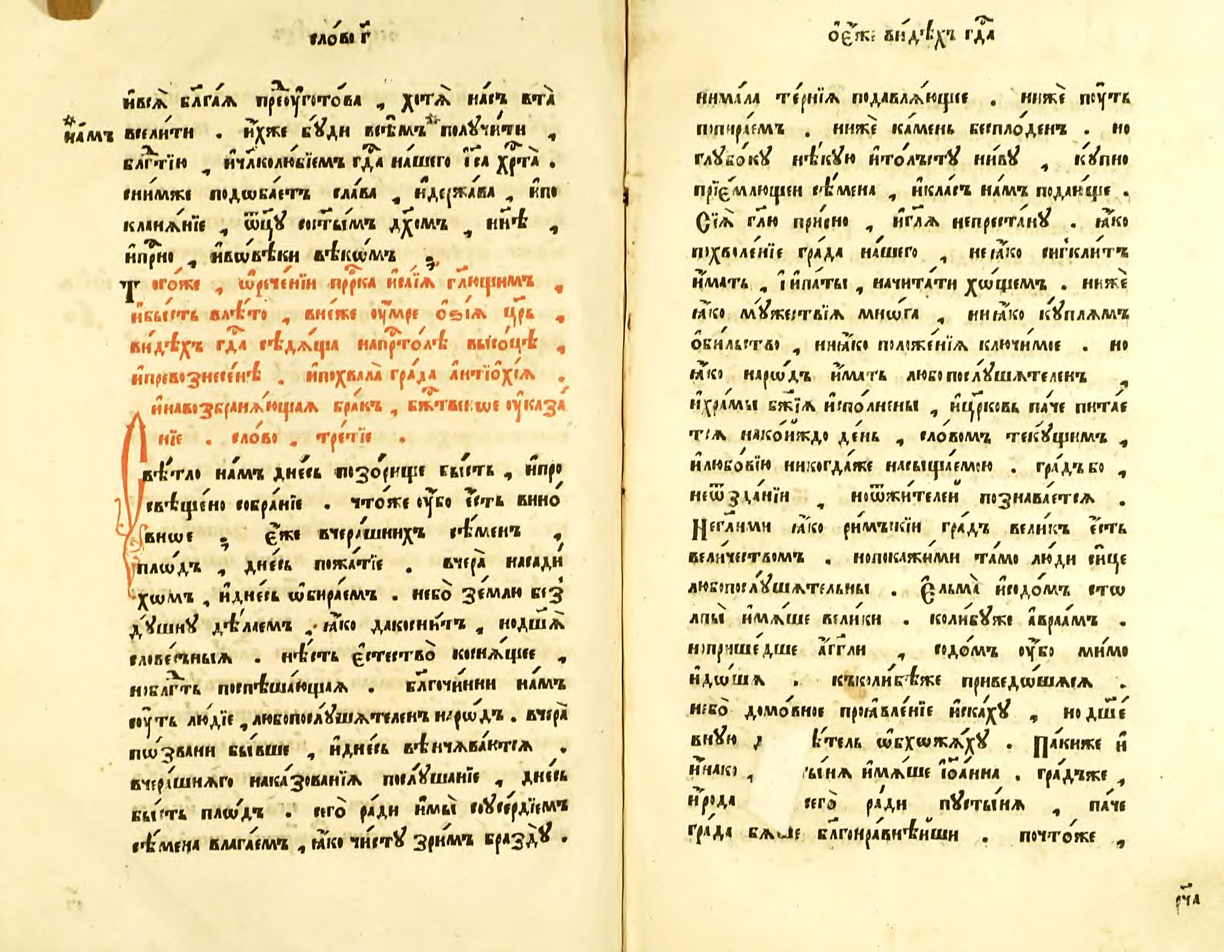 сло́во г҃
и҆всѧ̀ бл҃га́ѧ преᲂу҆гото́ва , хотѧ̀ на́съ вта̀
на́мъ всели́ти . и҆́хже бꙋ́ди всѣ́мъ получи́ти ,
бл҃гⷣтїю , и҆чл҃колю́бїемъ гдⷭ҇а на́шего і҆с҃а хрⷭ҇та̀ .
сни́мже подоба́етъ сла́ва , и҆держа́ва , и҆по
кланѧ́нїе , ѿц҃ꙋ̀ сост҃ы́мъ дх҃омъ , нн҃ѣ ,
и҆прⷭ҇но , и҆вовѣ́ки вѣкѡ́мъ
Того́же , ѡ҆рече́нїи прⷪ҇рка и҆са́їѧ гл҃ющимъ ,
и҆бы́сть влѣ́то , вне́же ᲂу҆́мре ѻ҆зі́ѧ цр҃ь ,
ви́дѣхъ гдⷭ҇а сѣдѧ́ща напрⷭ҇то́лѣ высо́цѣ ,
и҆превознесе́нѣ . и҆похвала̀ гра́да а҆нтїо́хїѧ .
и҆навозбранѧ́ющаѧ бра́къ , бж҃е́ственое ᲂу҆каза́
нїе . сло́во , тре́тїе .
Свѣ́тло на́мъ дне́сь позо́рище бы́сть , и҆про
свѣще́но собра́нїе . что́же ᲂу҆́бо є҆́сть вино́
вное ; є҆́же вчера́шнихъ сѣ́менъ ,
пло́дъ , дне́сь пожа́тїе . вчера̀ насади́
хомъ , и҆дне́сь ѡ҆бира́емъ . небо̀ зе́млю без̾
дꙋ́шнꙋ дѣ́лаемъ , ꙗ҆́ко дакосни́тъ , нодш҃ѧ̀
слове́сныѧ . нѣ́сть є҆стество̀ коснѧ́щее ,
нобл҃гⷣть поспѣша́ющаѧ . бл҃гочи́нни на́мъ
сꙋ́ть лю́дїе , любопослꙋ́шателенъ наро́дъ . вчера̀
по́звани бы́вше , и҆дне́сь вѣнча́ваютсѧ .
вчера́шнѧго наказова́нїѧ послꙋша́нїе , дне́сь
бы́сть пло́дъ . сего̀ ра́ди и҆мы̀ соусе́рдїемъ
сѣ́мена влага́емъ , ꙗ҆́ко чи́стꙋ зри́мъ бразд́ꙋ .
ѻ҆є҆́же ви́дѣхъ гдⷭ҇а
нима́ла те́рнїѧ подавлѧ́ющее . нижѐ пꙋ́ть
попира́емъ . нижѐ ка́мень беспло́денъ . но
глꙋбо́кꙋ нѣ́кую и҆то́лъстꙋ ни́вꙋ , кꙋ́пно
прїе́млющеи сѣ́мена , и҆кла́съ на́мъ пода́юще .
Сїѧ̀ гл҃ю при́сно , и҆гл҃ѧ непреста́нꙋ . ꙗ҆́ко
похвале́нїе гра́да на́шего , неꙗ҆́ко сиг̾кли́тъ
и҆́мать , и҆и҆па́ты , начита́ти хо́щемъ . нижѐ
ꙗ҆́ко мꙋ́жествїѧ мно́га , ниꙗ҆́ко кꙋ́плѧмъ
ѻ҆би́льство , ниꙗ҆́ко положе́нїѧ ключи́мое . но
ꙗ҆́ко наро́дъ и҆́мать любопослꙋ́шателенъ ,
и҆хра́мы бж҃їѧ и҆спо́лнены , и҆цр҃ковь па́че пита́е
тсѧ нако́йждо де́нь , сло́вомъ текꙋ́щимъ ,
и҆любо́вїю никогда́же насыща́емою . гра́дъбо ,
неѿзда́нїи , ноѿжи́телей познава́етсѧ .
Негл҃и́ми ꙗ҆́ко ри́мъскїи гра́дъ вели́къ є҆́сть
вели́чествомъ . нопокажи́ми та́мо лю́ди си́це
любопослꙋ́шательны . Є҆льма̀ и҆содо́мъ сто
лпы̀ и҆мѧ́ше вели́ки . коли́бꙋже а҆враа́мъ .
ноприше́дше а҆́гг҃ли , содо́мъ ᲂу҆́бо ми́мо
и҆до́ша . къколи́бѣже приведо́шасѧ .
небо̀ домо́вное проѧвле́нїе и҆ска́хꙋ , но дш҃е́
вную ѣтель ѡ҆бхожа́хꙋ . Па́киже и҆
и҆на́ко , ы́нѧ и҆мѧ́ше і҆ѡа́нна . гра́дъже ,
и҆́рода сего̀ ра́ди пꙋсты́нѧ , па́че
гра́да бѧ́ше бл҃гонра́внѣйши . почто́же ,
рч҃а